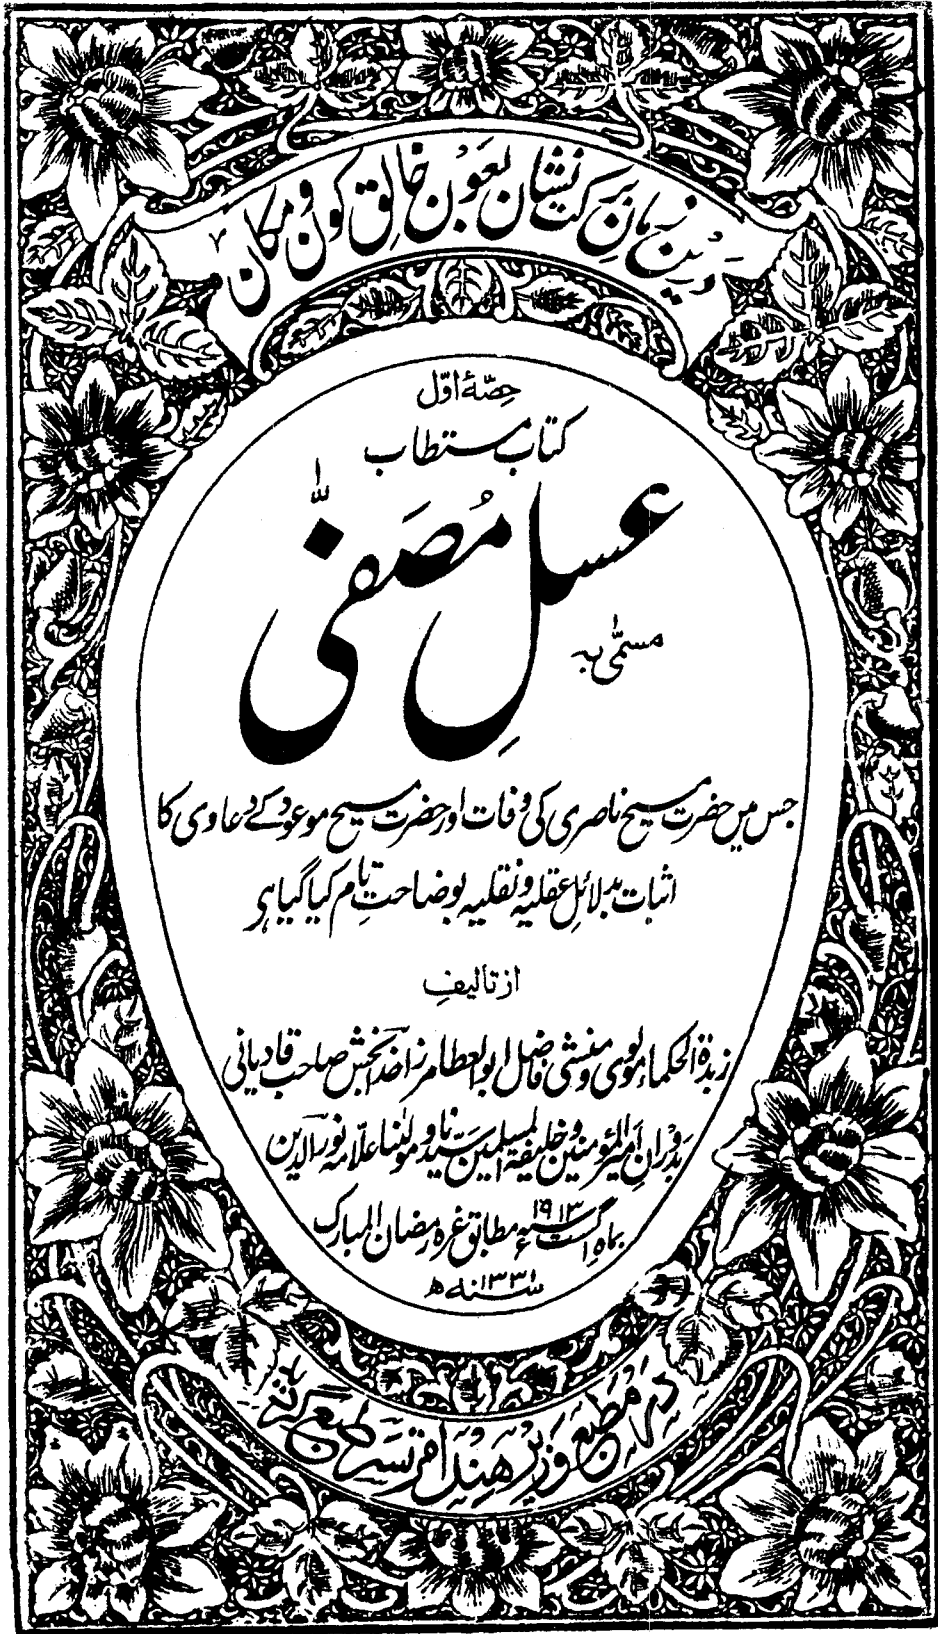 درین زمان برکت نشان بعون خالق کون و مکان
حصّۂ اوّل
کتاب مستطاب
مسمّٰی بہ
عسلِ مُصَفّٰی
جس میں حضرت مسیح ناصری کی وفات اور حضرت مسیح موعود کے دعاوی کا
اثبات بدلائل عقلیہ و نقلیہ بوضاحتِ تام کیا گیا ہر
از تالیفِ
زبدۃ الحکماء مولوی و منشی فاضل ابو العطا مرزا خدا بخش صاحب قادیانی
بدورانِ امیر المؤمنین و خلیفۃ المسلمین سیدنا و مولٰنا علامہ نور الدین
بماہ اگست ۱۹۱۳ء مطابق غرہ رمضان المبارک
سنہ ۱۳۳۱ھ
در مطبع وزیر هند امرتسر طبع گردید